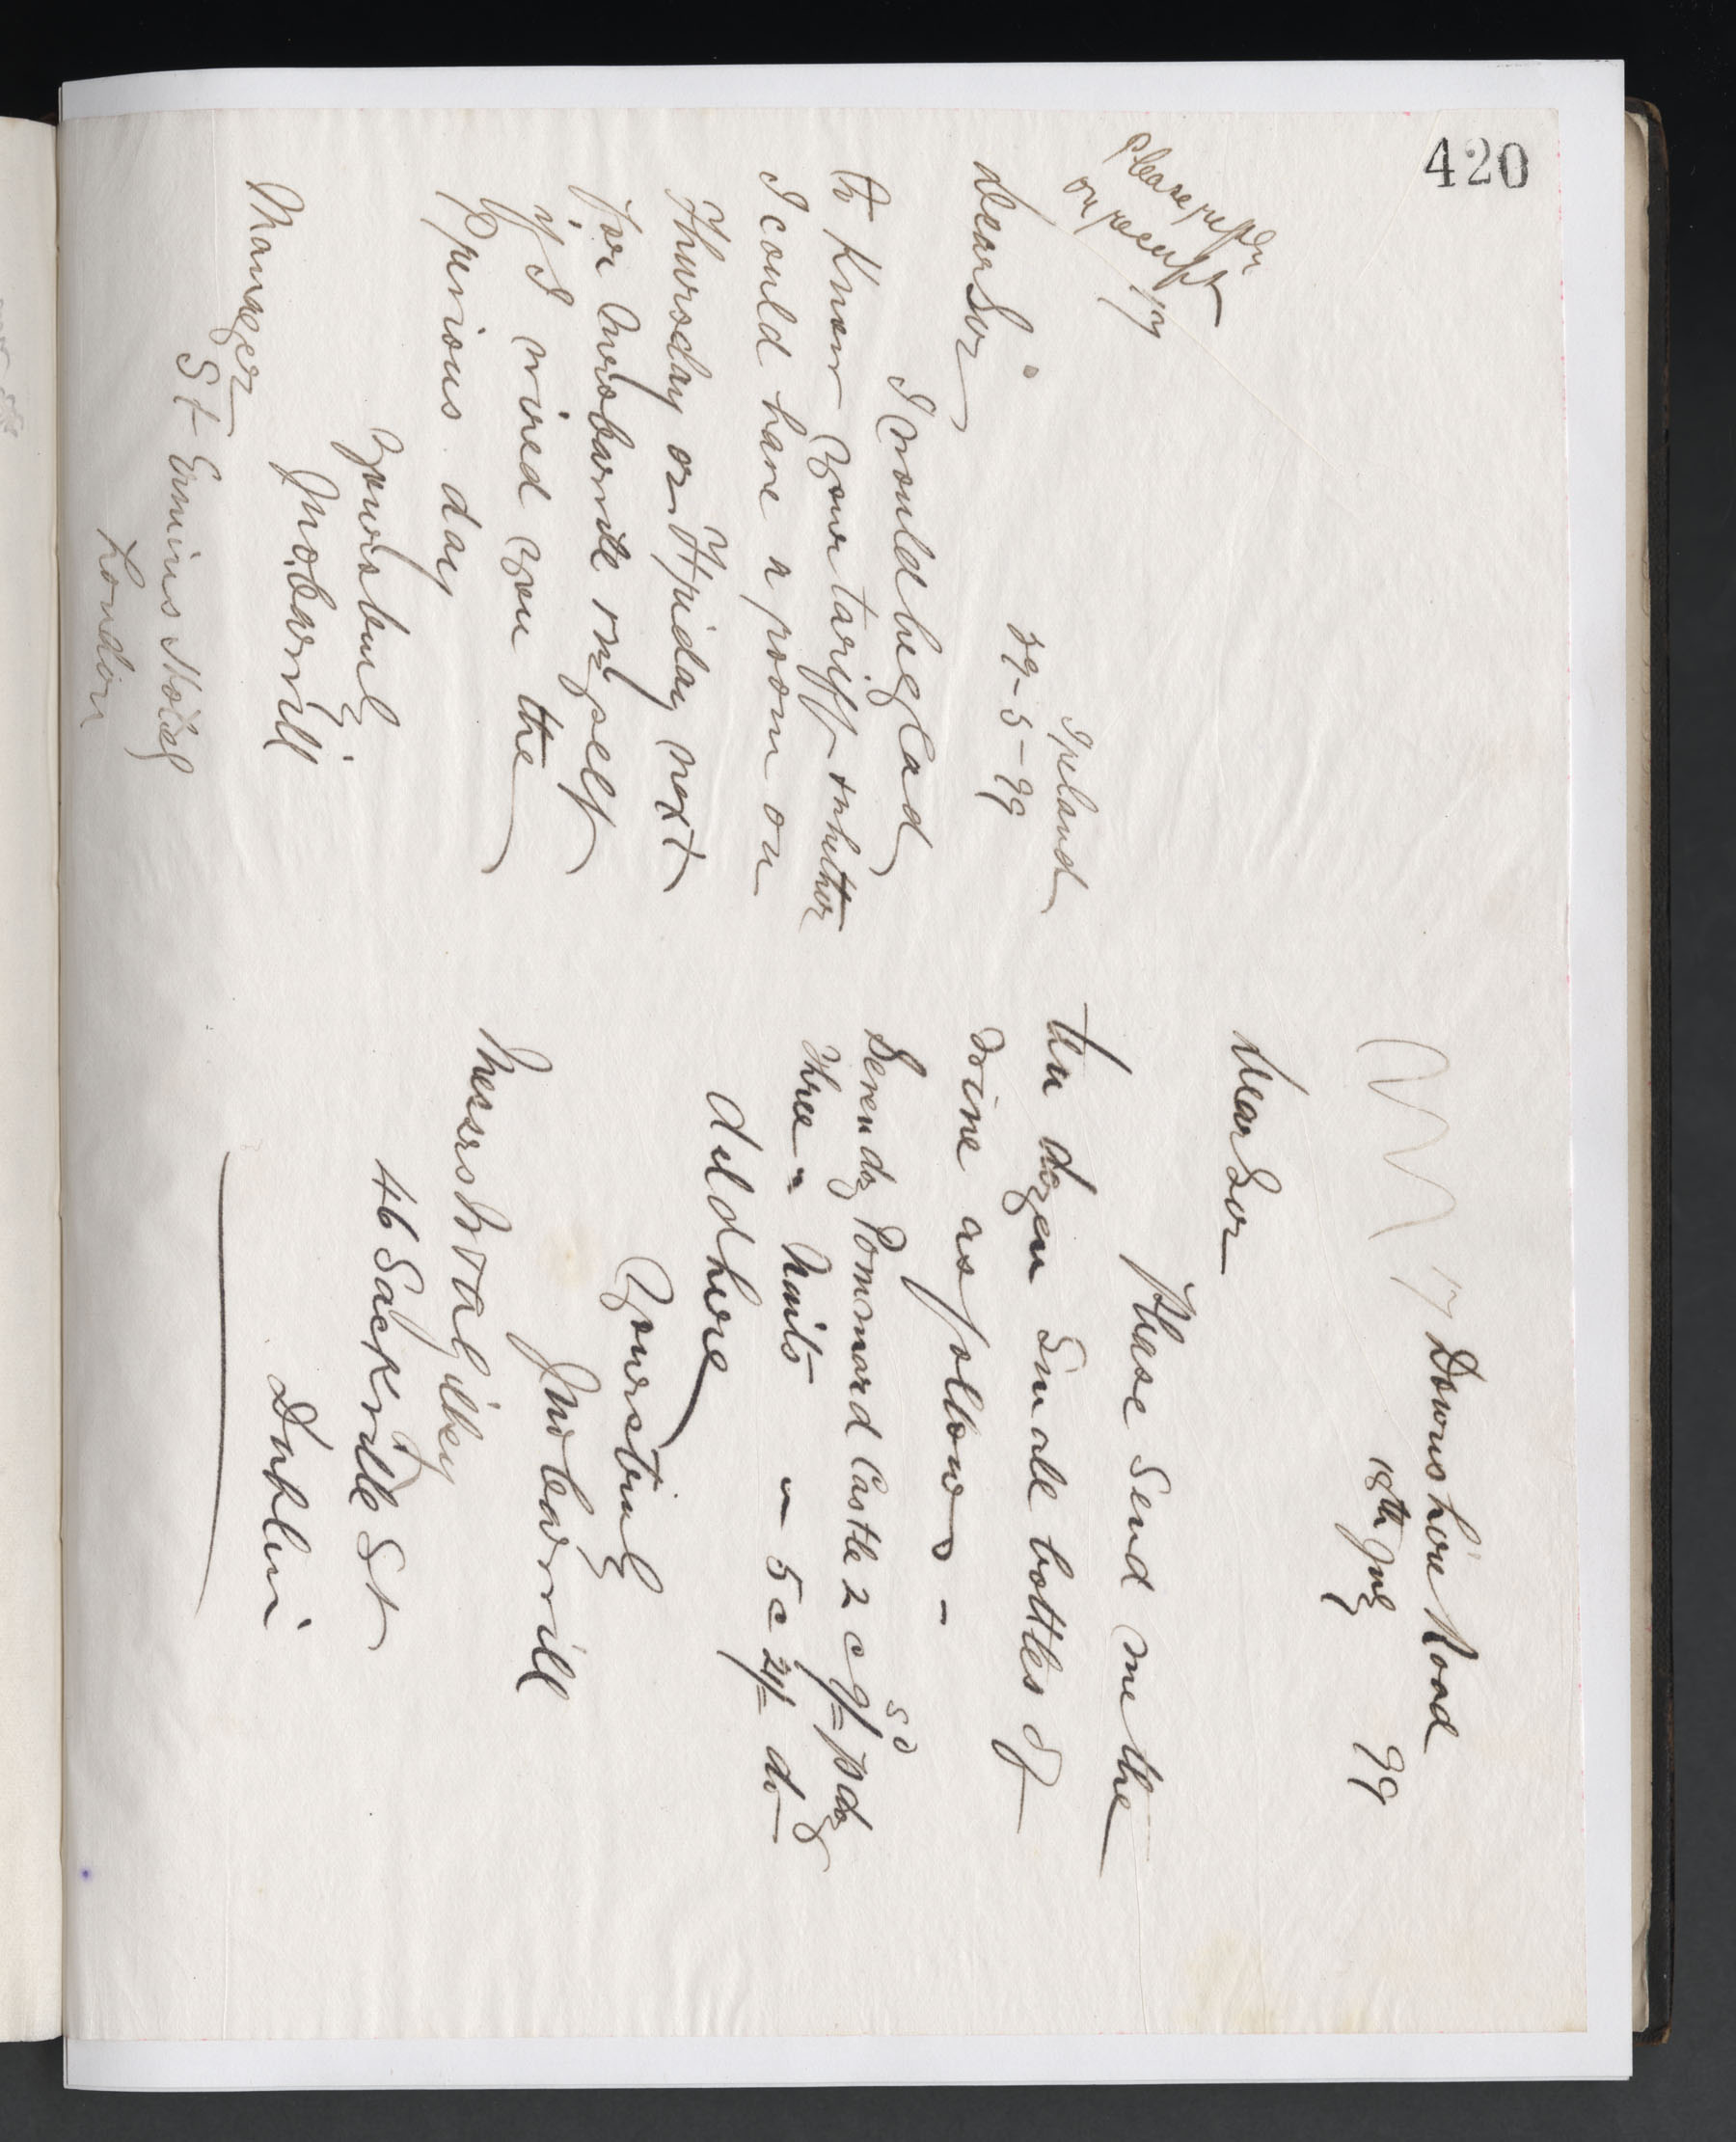 420
Please reply
on receipt
17
Ireland
29-5-99
Dear Sir
I would be glad
to know your tariff & whether
I could have a room on
Thursday or Friday next
for Mrs Barrill & myself
if I wired you the
previous day
Yours truly
Jno Barrill
Manager
St Ermins Hotel
London
17 Downshire Road
18th July 99
Dear Sir
Please send me the
ten dozen small bottles of
wine as follows -
Seven doz Pommard Castle 2 c 9/= p doz
Three " Nuits " 5 c 21/= do
dild here
Yours truly
Jno Barrill
Messrs W & A Gilbey
46 Sackville St
Dublin